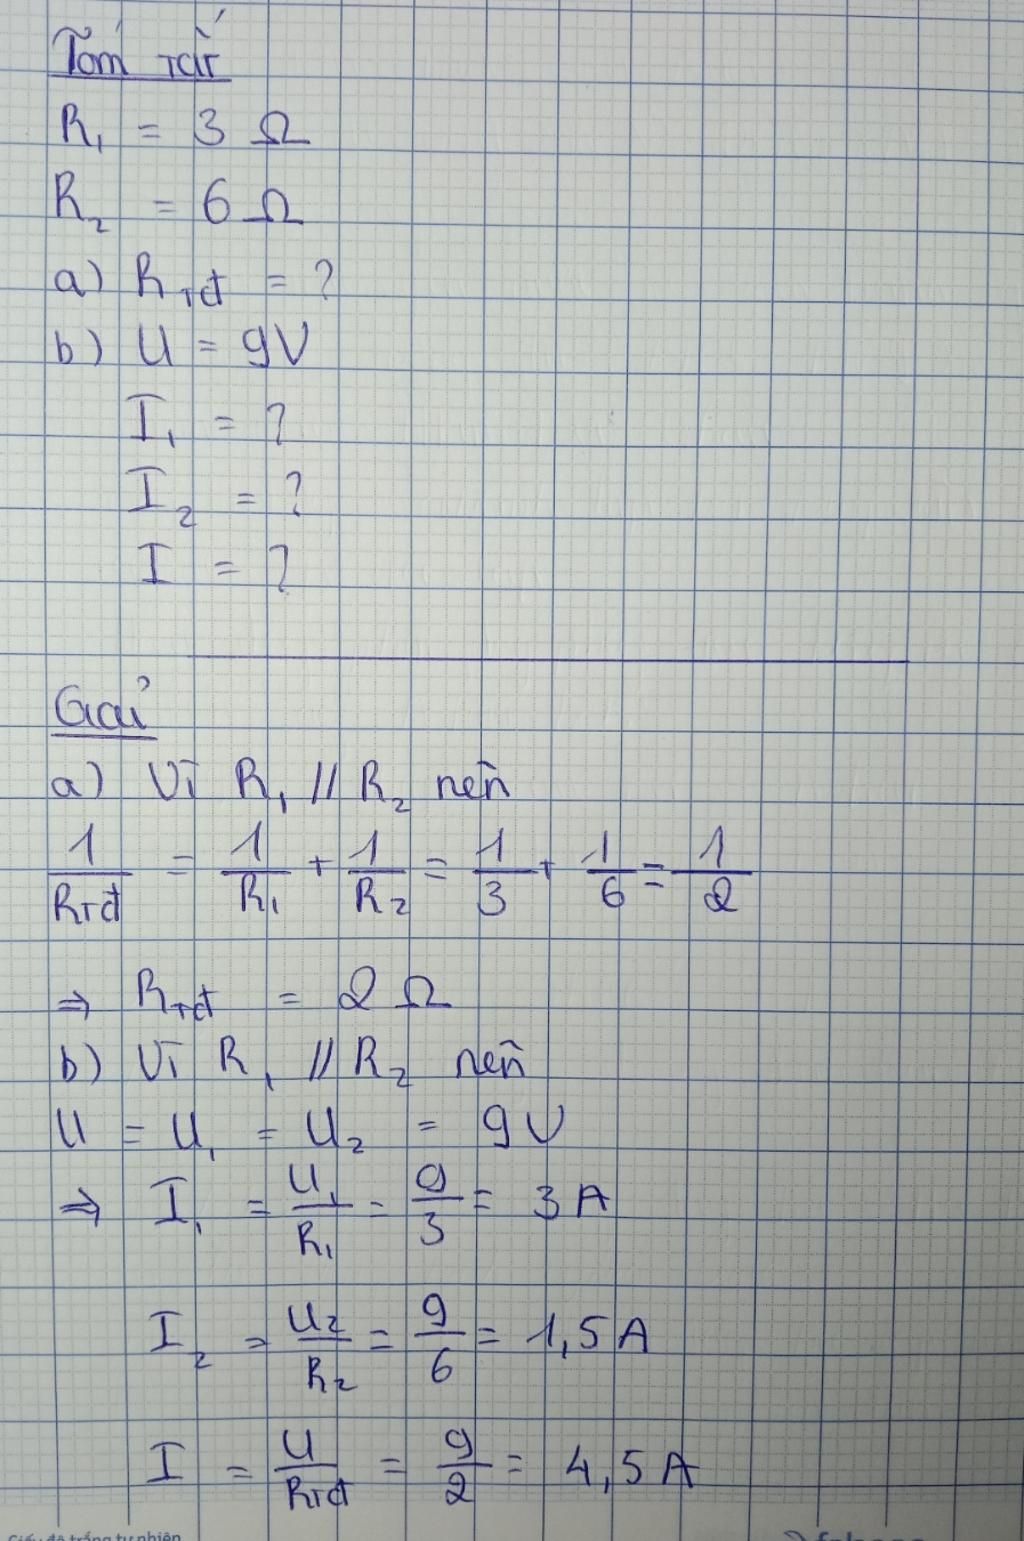 Tóm tắt
R₁ = 3 Ω
R₂ = 6 Ω
a) R_tđ = ?
b) U = 9V
I₁ = ?
I₂ = ?
I = ?
Giải
a) Vì R₁ // R₂ nên
1/R_tđ = 1/R₁ + 1/R₂ = 1/3 + 1/6 = 1/2
⇒ R_tđ = 2 Ω
b) Vì R₁ // R₂ nên
U = U₁ = U₂ = 9V
⇒ I₁ = U₁/R₁ = 9/3 = 3 A
I₂ = U₂/R₂ = 9/6 = 1,5 A
I = U/R_tđ = 9/2 = 4,5 A
Giấy độ trắng tự nhiên